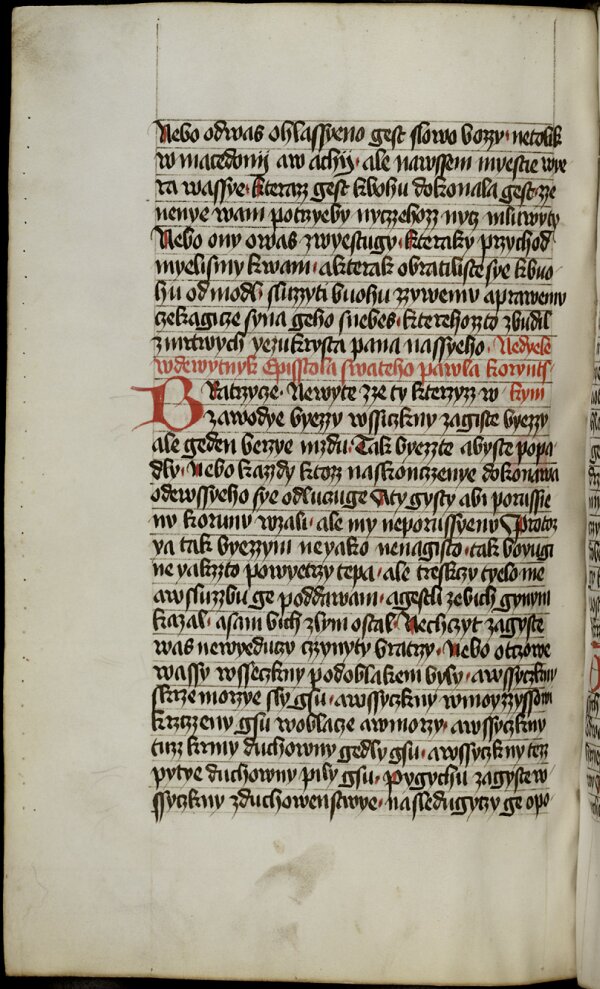 Nebo odwas ohlassyeno gest slowo bozzy netolik
w macedonij aw achij ale nawssem myestie wye
ra wassye kterazz gest kbohu dokonala gest zze
nenye wam potrzyeby nyczehozz nycz mluwyty
Nebo ony owas zwyestugy kteraky przychod
myelismy kwam akterak obratiliste sye kbuo
hu od modl sluzzyti buohu zzywemu aprawemu
czekagicze syna geho snebes kterehozzto zbudil
zmrtwych yezukrysta pana nassyeho Nedyele
wdewytnyk Episstola swateho pawla koryntſ
Bratrzycze Newyte zze ty kterzyzz w kym
zawodye byezzy wssiczkny zagiste byezzy
ale geden berzye mzdu Tak byezzte abyste popa
dly Nebo kazzdy ktozz naskonczzenye dokonawa
odewssyeho sye odluczuge Aty gysty abi porussie
nu korunu wzali ale my neporussyenu Protozz
ya tak byezzym ne yako nenagisto tak boyugi
ne yakzzto powyetrzy tepa ale treskczy tyelo me
aw sluzzbu ge poddawam agestli zebich gynym
kazal asam bich zlym ostal Nechczyt zagyste
was newyeduczy czzynyty bratrzy Nebo otczowe
wassy wsseczkny podoblakem byly awssyczkny
skrze morzye sly gsu awssyczkny wmoyzzyssowi
krzczeny gsu woblacze awmorzy awssyczkny
tuzz krmy duchowny gedly gsu awssyczkny tezz
pytye duchowny pily gsu Pygychu zagyste w
ssyczkny zduchowenstwye nasledugyczy ge opo